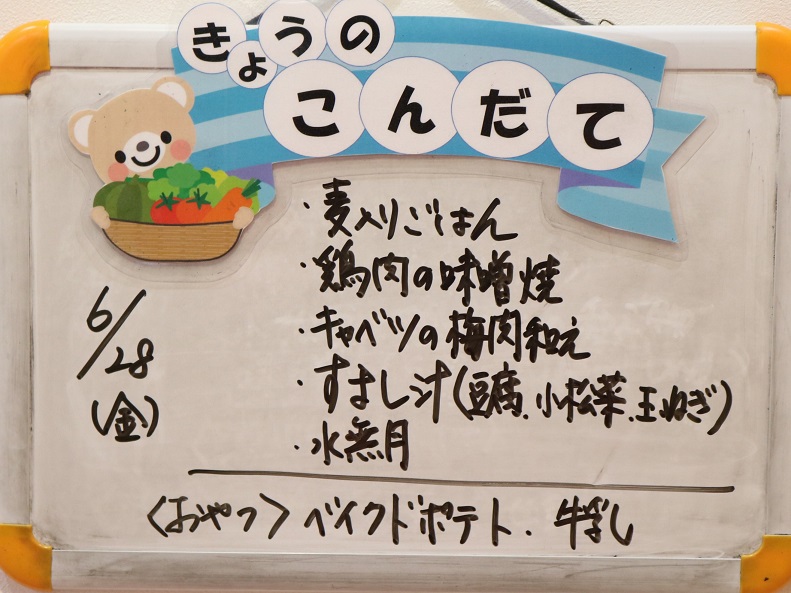 きょうの
こんだて
6/28
(金)
・麦入りごはん
・鶏肉の味噌焼
・キャベツの梅肉和え
・すまし汁(豆腐、小松菜、玉ねぎ)
・水無月
〈おやつ〉ベイクドポテト、牛乳